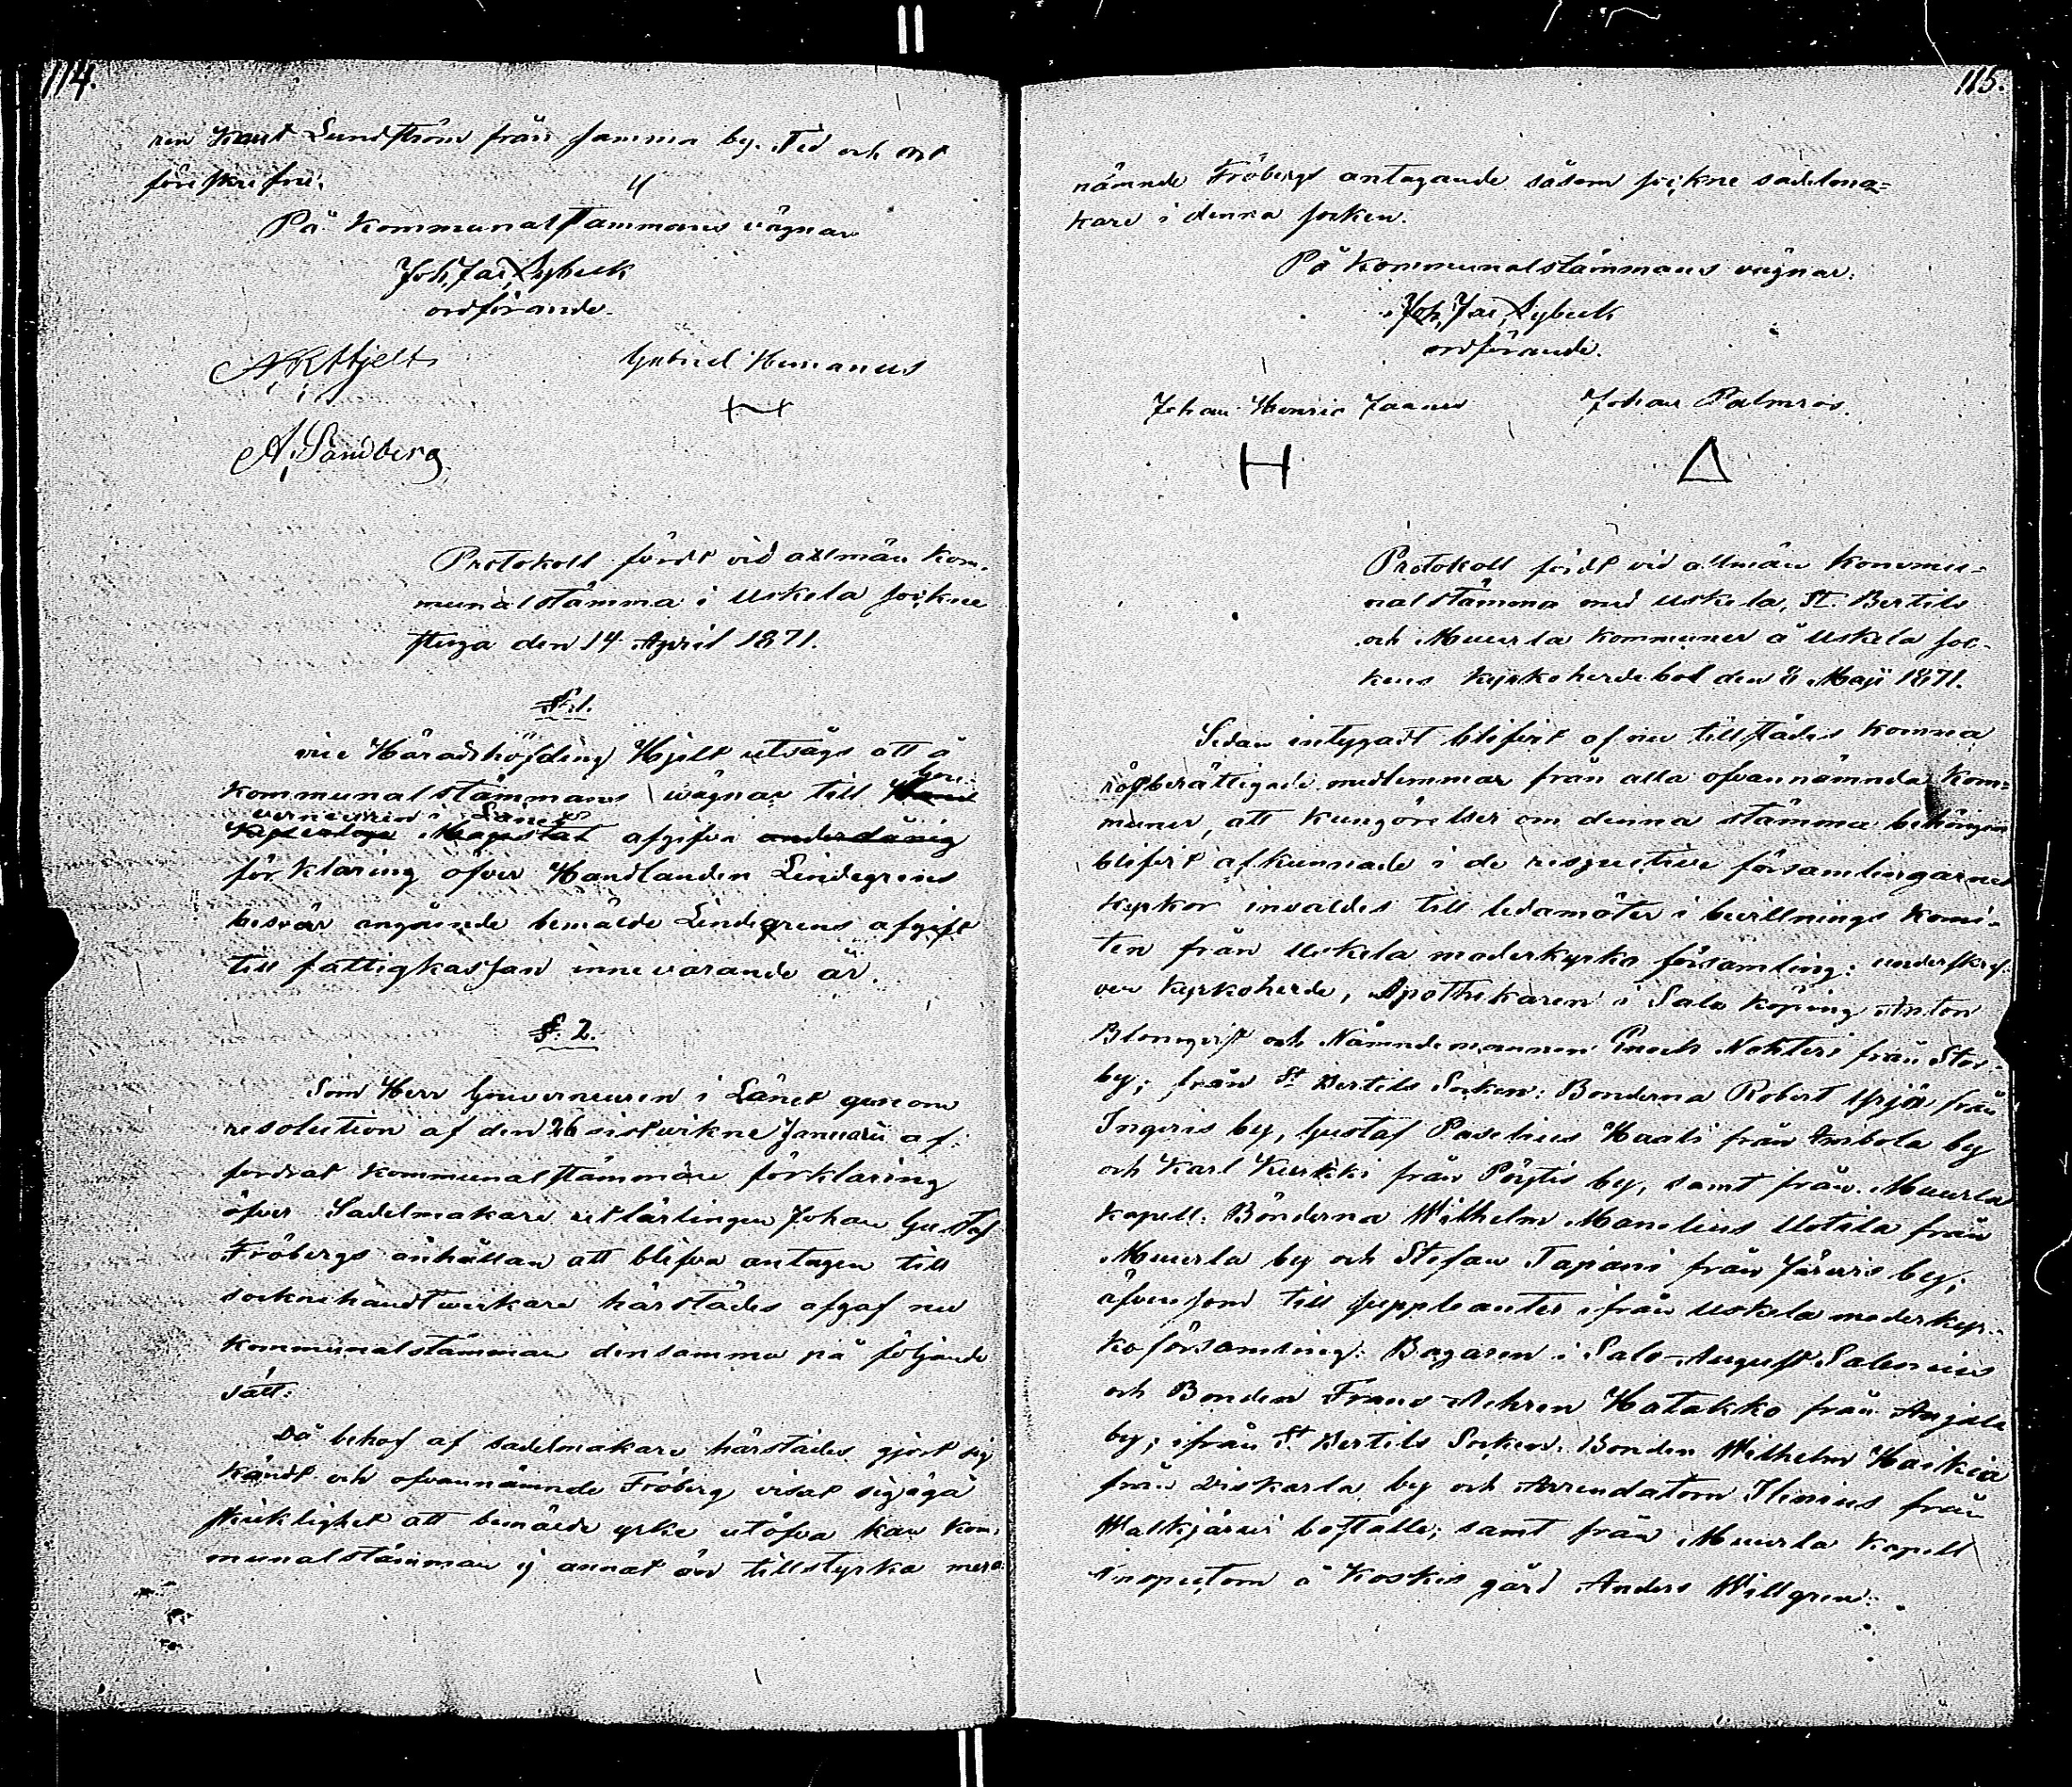 114.
ren Knut Lundström från samma by. Tid och ort
föreskrefne.
På Kommunalstämmans vägnar
Joh, Jac, Lybeck
ordförande.
A R Hjelt
Gabriel Numanus
A, Sandberg
Protokoll fördt vid allmän Kom-
munalstämma i Uskela sockne
stuga den 14 April 1871.
§ 1.
vice Häradshöfding Hjelt utsågs att å
Kommunalstämmans vägnar till Gou-
verneuren i Länet afgifva underdånig
förklaring öfver Handlanden Lindegrens
besvär angående bemälde Lindegrens afgift
till fattigkassan innevarande år.
§. 2.
Som Herr Gouverneuren i Länet genom
resolution af den 26 sistvikne Januarii af-
fordrat Kommunalstämman förklaring
öfver Sadelmakare utlärlingen Johan Gustaf
Fröbergs anhållan att blifva antagen till
sockne handtverkare härstädes afgaf nu
Kommunalstämman densamma på följande
sätt:
Då behof af sadelmakare härstädes gjort sig
kändt och ofvannämnde Fröberg visat sig äga
skicklighet att bemälde yrke utöfva kan Kom-
munalstämman ej annat än tillstyrka mera
115.
nämnde Fröbergs antagande såsom sockne sadelma-
kare i denna socken.
På Kommunalstämmans vägnar:
Joh, Jac, Lybeck
ordförande.
Johan Henric Jaanus
Johan Palmros.
H
Δ
Protokoll fördt vid allmän Kommu-
nalstämma med Uskela, St. Bertils
och Muurla Kommuner å Uskela soc-
kens Kyrkoherdebol den 8 Maji 1871.
Sedan intygadt blifvit af nu tillstädes komna
röstberättigade medlemmar från alla ofvannämnda Kom-
muner, att kungörelser om denna stämma behörigen
blifvit afkunnade i de respective församlingarnes
kyrkor invaldes till ledamöter i bevillnings Komi-
ten från Uskela moderkyrko församling: underskref-
ven Kyrkoherde, Apothekaren i Salo köping Anton
Blomqvist och Nämndemannen Enoch Nohteri från Stor-
by; från St Bertils Socken: Bönderna Robert Yrjä från
Ingeris by, Gustaf Paselius Haali från by
och Karl Kurkki från Pöytis by, samt från Muurla
Kapell: Bönderna Wilhelm Manelius Uotila från
Muurla by och Stefan Tapani från Järvis by;
äfvensom till suppleanter ifrån Uskela moderkyr-
koförsamling: Bagaren i Salo August Salenius
och Bonden Frans Hatakko från Anjala
by; ifrån St Bertils Socken: Bonden Wilhelm Haikia
från Viskarla by och Arrendatorn Ilenius från
Walkjärvi boställe; samt från Muurla Kapell
Inspectorn å Koskis gård Anders Willgren.